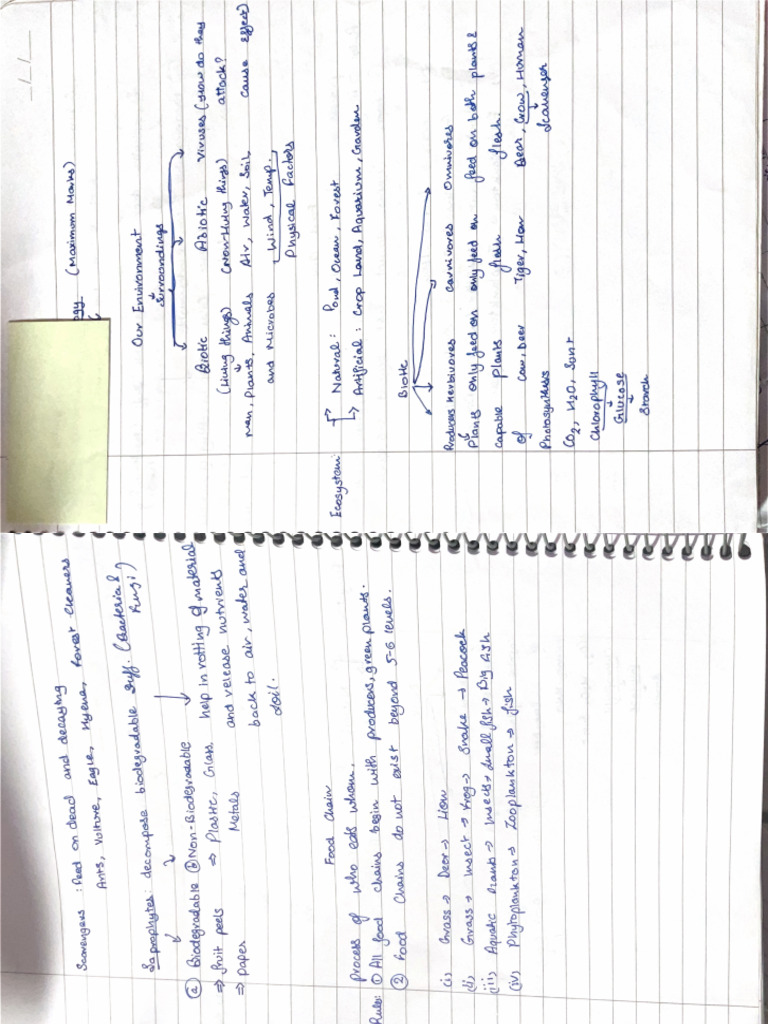 ogy (Maximum Marks)
Our Environment
↓
Surroundings
Biotic Abiotic viruses (How do they
(Living things) (Non-living things) attack?
Man, Plants, Animals Air, Water, Soil cause effect)
and Microbes Wind, Temp.
Physical Factors
Ecosystem: → Natural : Pond, Ocean, Forest
→ Artificial : Crop Land, Aquarium, Garden
Biotic
Producers Herbivores Carnivores Omnivores
Plants only feed on only feed on feed on both plants &
capable plants flesh flesh.
of Cow, Deer Tiger, Lion Bear, Crow, Human
Photosynthesis ↓ Scavenger
CO2, H2O, Sun +
Chlorophyll
↓
Glucose
↓
Starch
Scavengers : Feed on dead and decaying
Ants, Vulture, Eagle, Hyena, forest cleaners
Saprophytes : decompose biodegradable stuff. (Bacteria &
Fungi)
ⓐ Biodegradable ⓑ Non-Biodegradable help in rotting of material
⇒ fruit peels ⇒ Plastic, Glass, and release nutrients
⇒ paper Metals back to air, water and
soil.
Food Chain
Process of who eats whom.
Rules: ① All food chains begin with producers, green plants.
② Food Chains do not exist beyond 5-6 levels.
(i) Grass → Deer → Lion
(ii) Grass → Insect → Frog → Snake → Peacock
(iii) Aquatic Plants → Insects → Small fish → Big fish
(iv) Phytoplankton → Zooplankton → fish